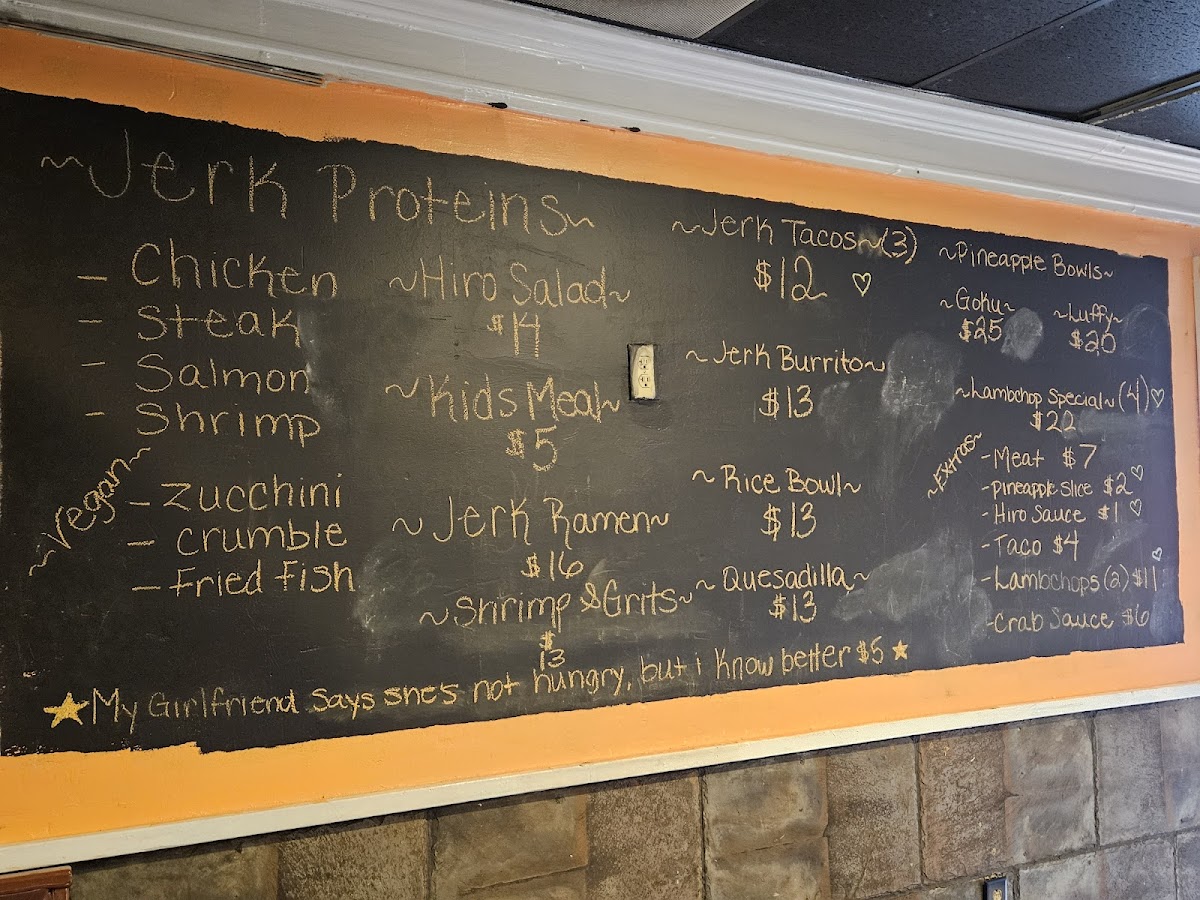 ~Jerk Proteins~
- Chicken
- Steak
- Salmon
- Shrimp
~Vegan~
- Zucchini
- crumble
- Fried Fish
~Hiro Salad~
$14
~Kids Meal~
$5
~Jerk Ramen~
$16
~Shrimp & Grits~
$
13
~Jerk Tacos~(3)
$12 ♡
~Jerk Burrito~
$13
~Rice Bowl~
$13
~Quesadilla~
$13
~Pineapple Bowls~
~Goku~
$25
~Luffy~
$20
~Lambchop Special~(4)♡
$22
~Extras~
-Meat $7
-Pineapple Slice $2♡
-Hiro Sauce $1 ♡
-Taco $4
-Lambchops (2) $11
-Crab Sauce $6
★My Girlfriend Says she's not hungry, but i know better $5 ★